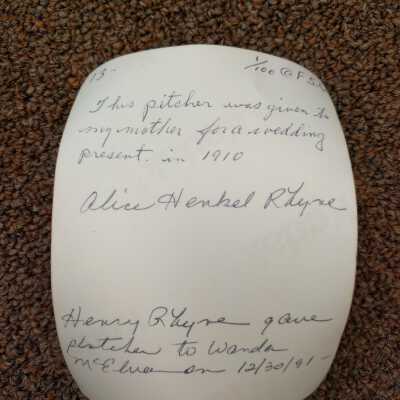 13-
1/100 @ F 5.6
This pitcher was given to
my mother for a wedding
present. in 1910
Alice Henkel Rhyne
Henry Rhyne gave
pitcher to Wanda
on 12/30/91-